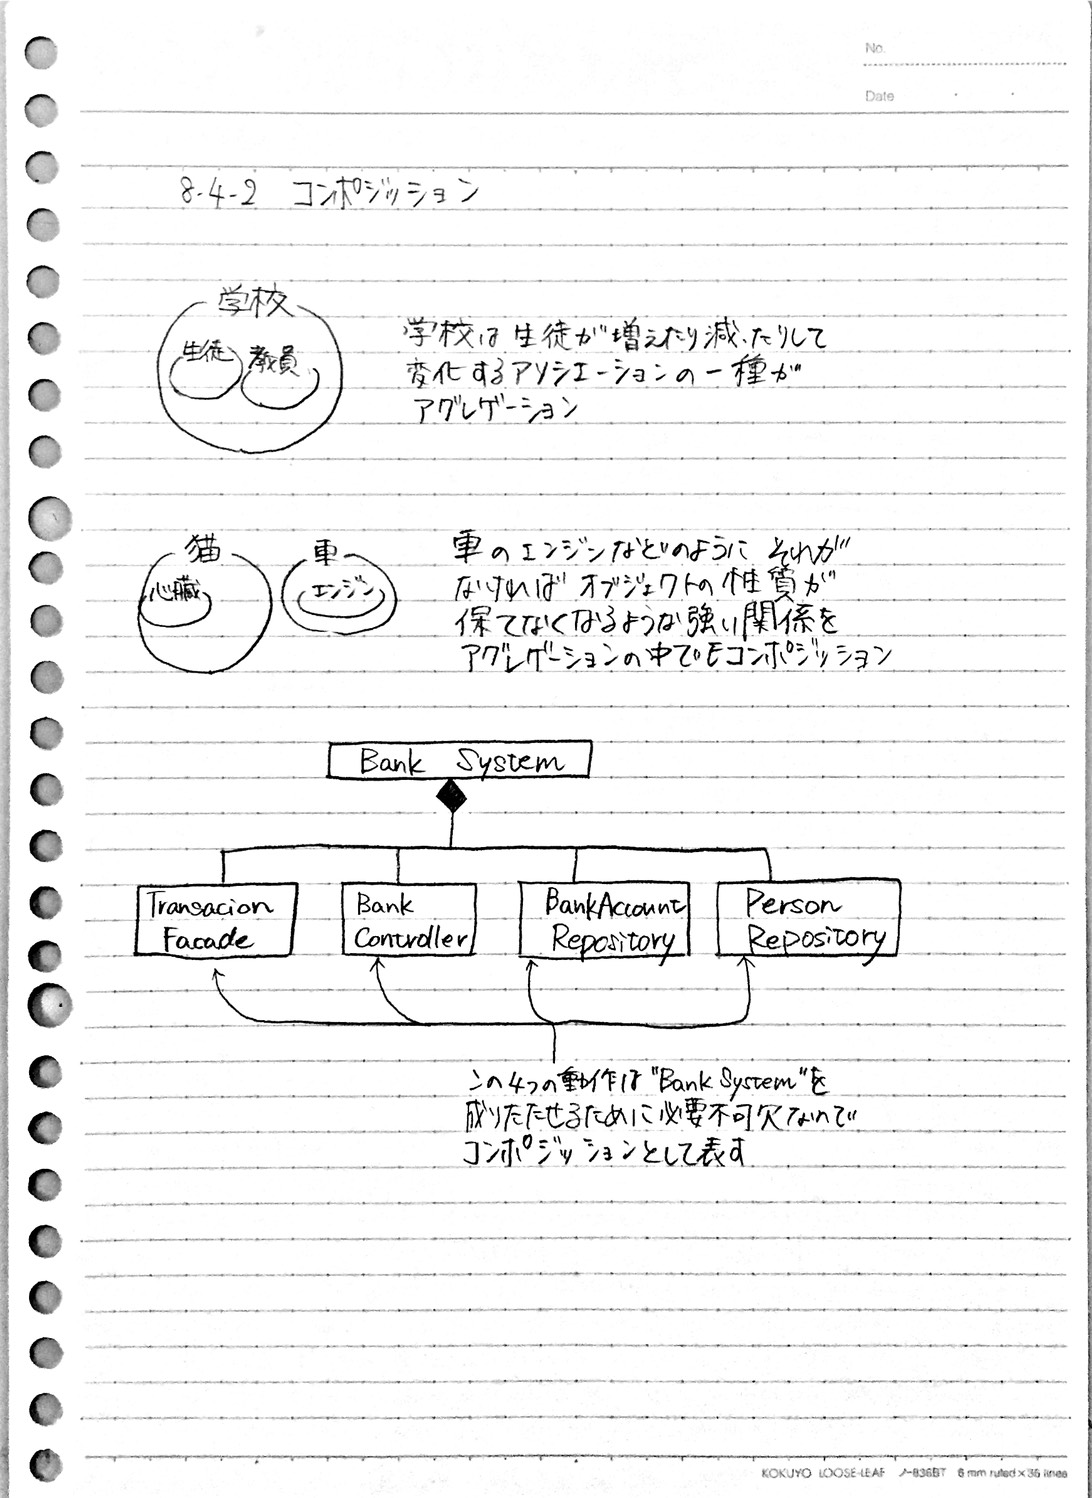 No.
Date
8-4-2 コンポジッション
学校
生徒 教員
学校は生徒が増えたり減ったりして
変化するアソシエーションの一種が
アグレゲーション
猫 車
心臓 エンジン
車のエンジンなどのように それが
なければ オブジェクトの性質が
保てなくなるような強い関係を
アグレゲーションの中でもコンポジッション
Bank System
Transacion Facade
Bank Controller
BankAccount Repository
Person Repository
この4つの動作は "Bank System"を
成りたたせるために必要不可欠なので
コンポジッションとして表す
KOKUYO LOOSE-LEAF ノ-836BT 6 mm ruled×36 lines